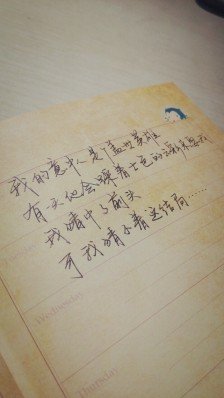 我的意中人是个盖世英雄
有天他会踩着七色的云彩来娶我
我猜中了前头
可我猜不着这结局……
Wednesday
Thursday